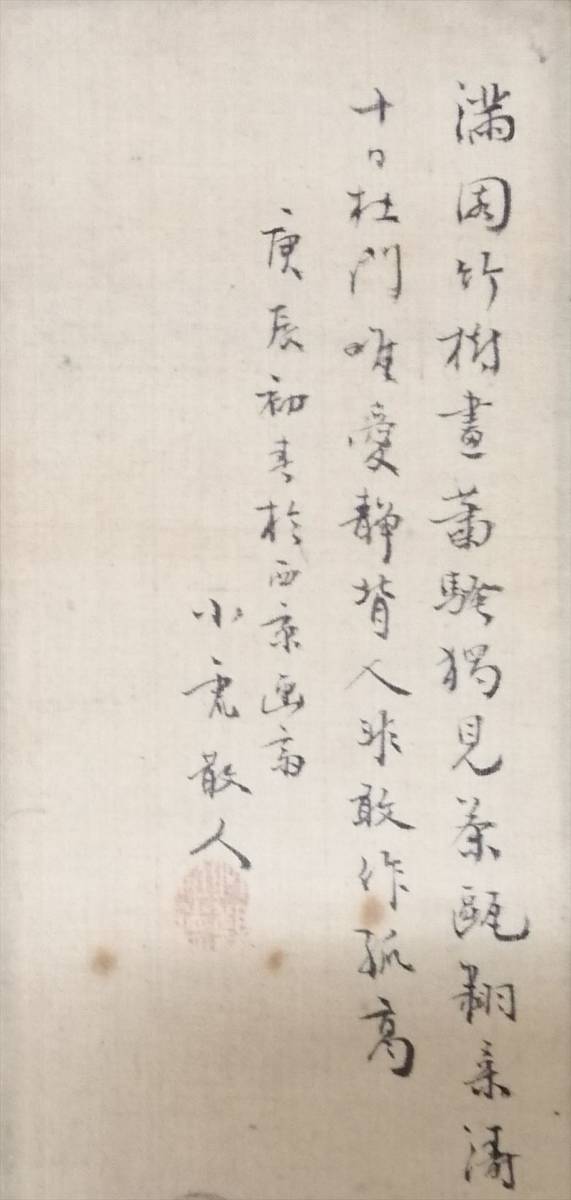 滿園竹樹畫蕭騷獨見茶甌翻雪濤
十日杜門唯愛靜背人非敢作孤高
庚辰初春於西京画斎
小虎散人